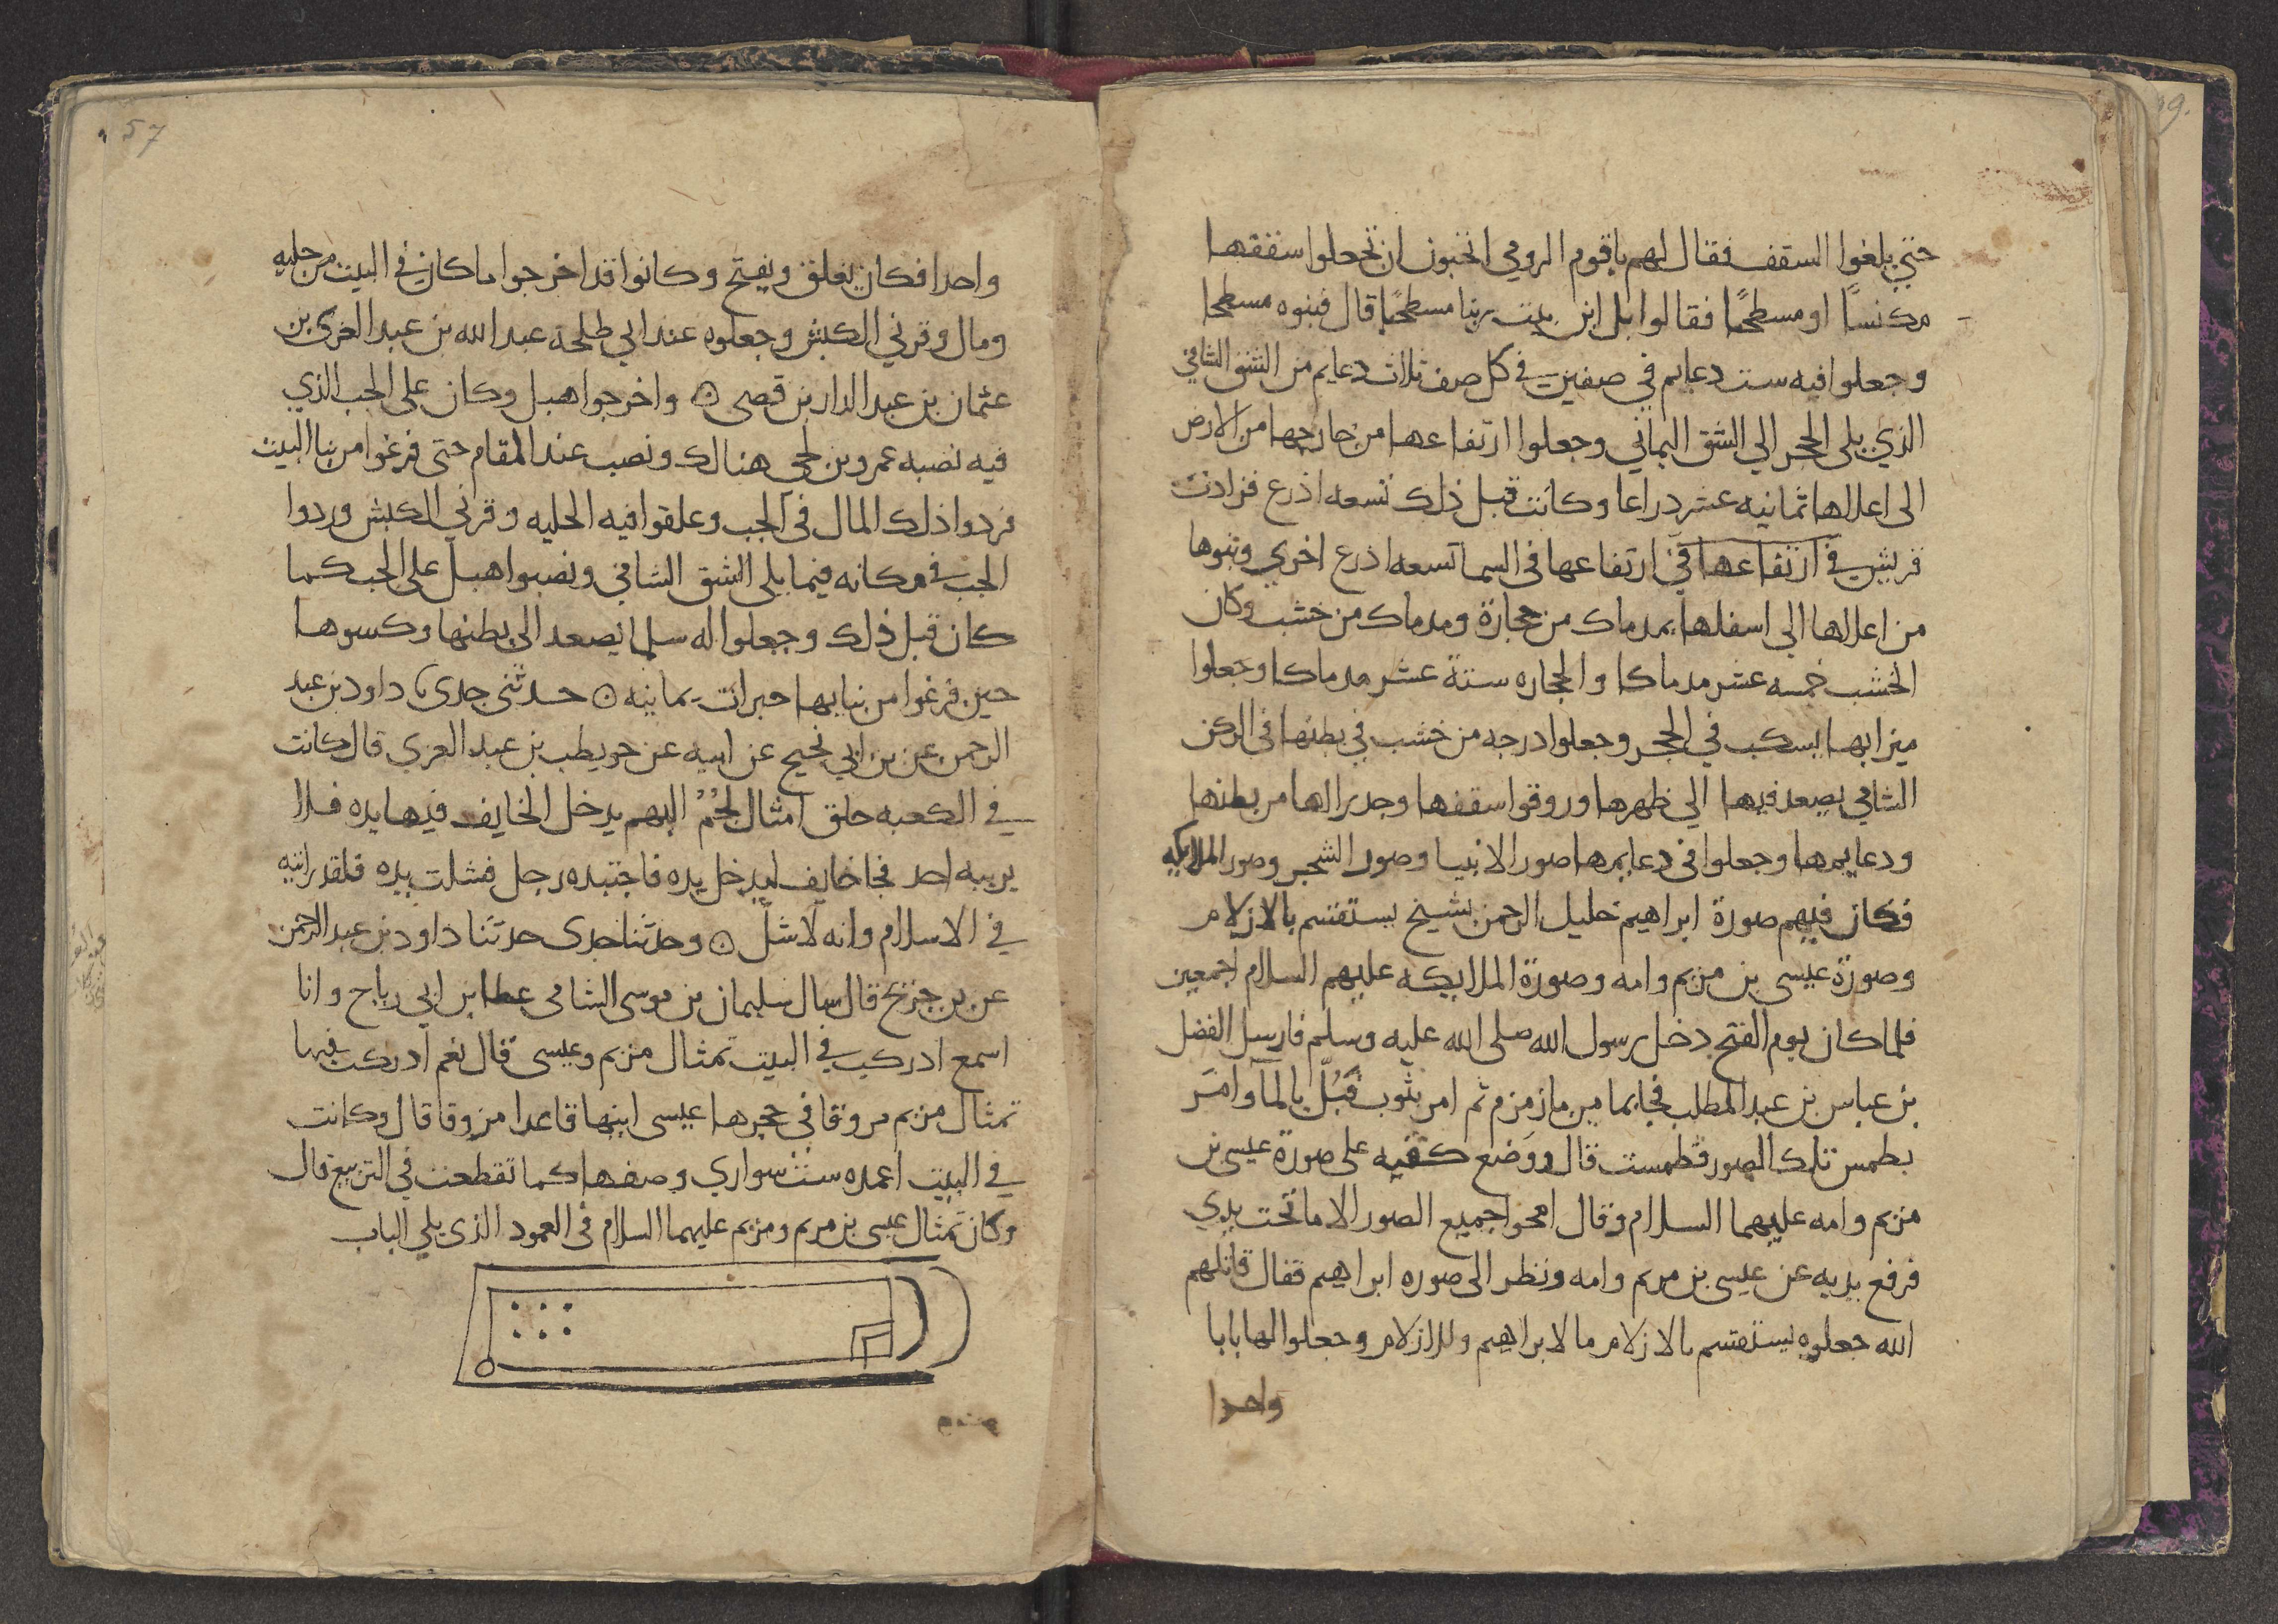 حتي بلغوا السقف فقال لهم باقوم الرومي اتحبون ان تجعلوا سقفها
مكنسًا او مسطحًا فقالوا بل ابن بيت ربنا مسطحًا قال فبنوه مسطحا
وجعلوا فيه ست دعايم في صفين في كل صف ثلاث دعايم من الشق الشامي
الذي يلي الحجر الي الشق اليماني وجعلوا ارتفاعها من خارجها من الارض
الى اعلاها ثمانيه عشر ذراعا وكانت قبل ذلك تسعه اذرع فزادت
قريش في ارتفاعها في ارتفاعها في السما تسعه اذرع اخري وبنوها
من اعلاها الي اسفلها بمدماك من حجارة ومدماك من خشب وكان
الخشب خمسه عشر مدماكا والحجاره ستة عشر مدماكا وجعلوا
ميزابها يسكب في الحجر وجعلوا درجه من خشب في بطنها في الركن
الشامي يصعد فيها الي ظهرها وزوقوا سقفها وجدراتها من بطنها
ودعايمها وجعلوا في دعايمها صور الانبيا وصور الشجر وصور الملايكه
فكان فيهم صورة ابراهيم خليل الرحمن شيخ يستقسم بالازلام
وصورة عيسى بن مريم وامه وصورة الملايكه عليهم السلام اجمعين
فلما كان يوم الفتح دخل رسول الله صلى الله عليه وسلم فارسل الفضل
بن عباس بن عبد المطلب فجا بما من ما زمزم ثم امر بثوب فَبُلّ بالمآ وامَر
بطمس تلك الصور فطمست قال ووَضع كفيه على صورة عيسى بن
مريم وامه عليهما السلام وقال امحوا جميع الصور الا ما تحت يدي
فرفع يديه عن عيسى بن مريم وامه ونظر الى صوره ابراهيم فقال قاتلهم
الله جعلوه يستقسم بالازلام ما لابراهيم وللازلام وجعلوا لها بابا
واحدا
57
واحدا فكان يغلق ويفتح وكانوا قد اخرجوا ما كان في البيت من حليه
ومال وقرني الكبش وجعلوه عند ابي طلحة عبد الله بن عبد العزى بن
عثمان بن عبد الدار بن قصى ۞ واخرجوا هبل وكان على الجب الذي
فيه نصبه عمرو بن لحي هنالك ونصب عند المقام حتى فرغوا من بنا البيت
فردوا ذلك المال في الجب وعلقوا فيه الحليه وقرني الكبش وردوا
الجب في مكانه فيما يلي الشق الشامي ونصبوا هبل على الجب كما
كان قبل ذلك وجعلوا له سلما يصعد الى بطنها وكسوها
حين فرغوا من بنايها حبرات يمانيه ۞ حدثنى جدي ثنا داود بن عبد
الرحمن عن بن ابي نجيح عن ابيه عن حويطب بن عبد العزي قال كانت
في الكعبه حلق امثال لُجُمُ البهم يدخل الخايف فيها يده فلا
يريبه احد فجا خايف ليدخل يده فاجتبده رجل فشلت يده فلقد رايته
في الاسلام وانه لاشلّ ۞ وحدثنا جدى حدثنا داود بن عبد الرحمن
عن بن جريج قال سال سليمان بن موسى الشامى عطا بن ابي رباح وانا
اسمع ادركت في البيت تمثال مريم وعيسى قال نعم ادركت فيها
تمثال مريم مزوقا في حجرها عيسى ابنها قاعدا مزوقا قال وكانت
في البيت اعمده ستُّ سواري وصفها كما تقطعت في التربيع قال
وكان تمثال عيسى بن مريم ومريم عليهما السلام في العمود الذى يلي الباب